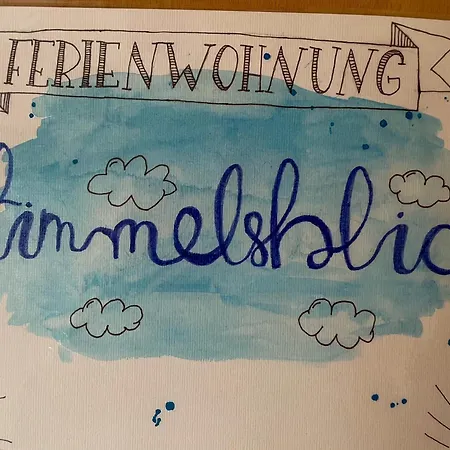 FERIENWOHNUNG
Himmelsblic